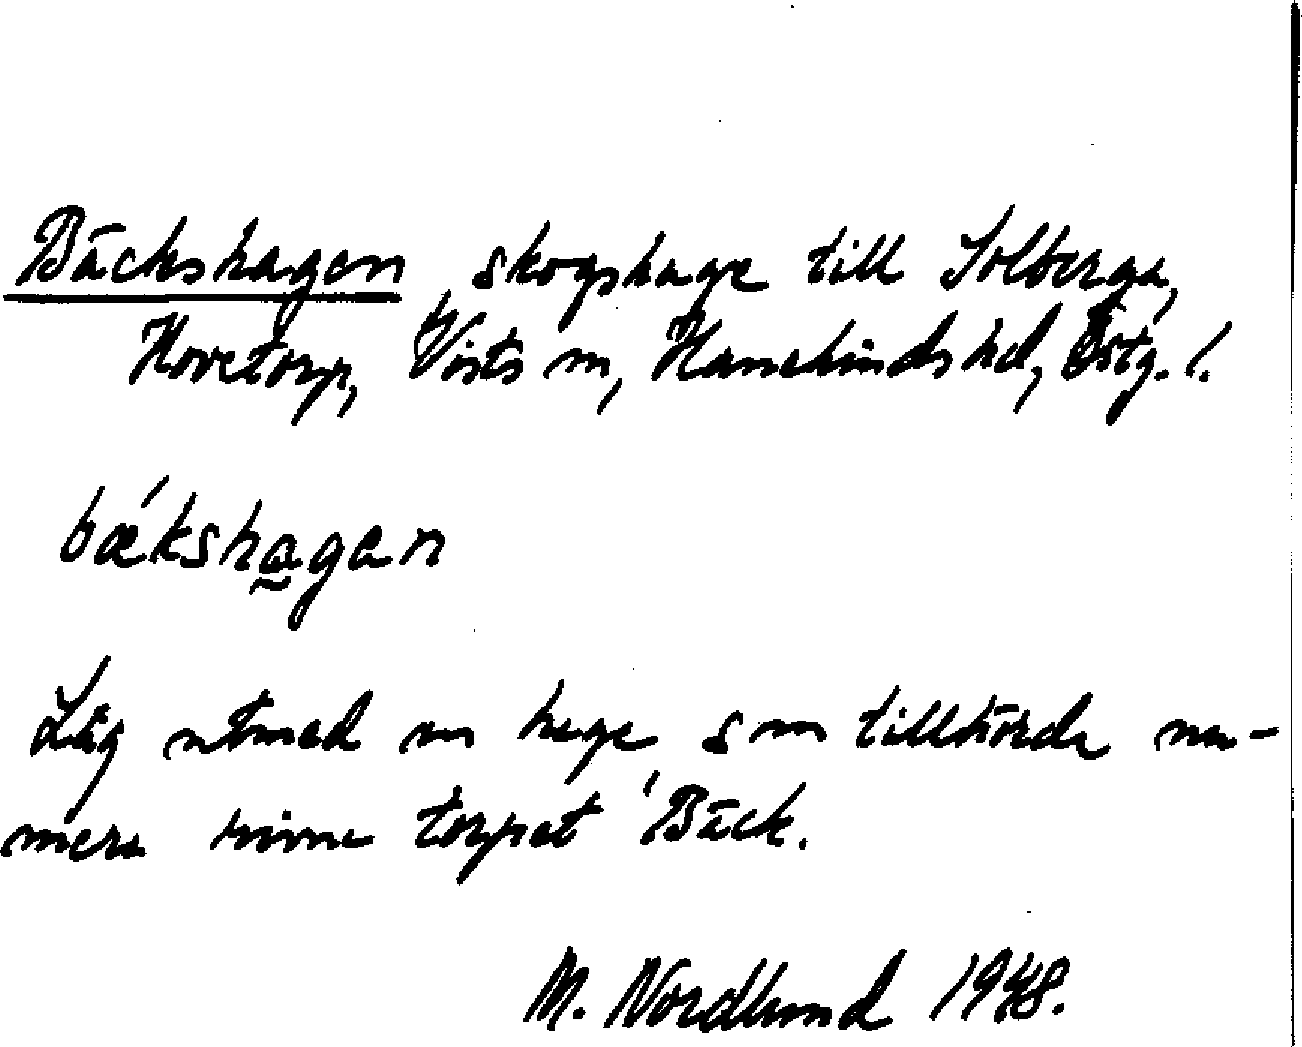 Bäckshagen, skogshage till Solberga,
Hovetorp, Vists sn, Hanekinds hd, Östg. l.
bǽkshagan
Låg utmed en hage, som tillhörde nu-
mera rivna torpet Bäck.
M. Nordlund 1948.